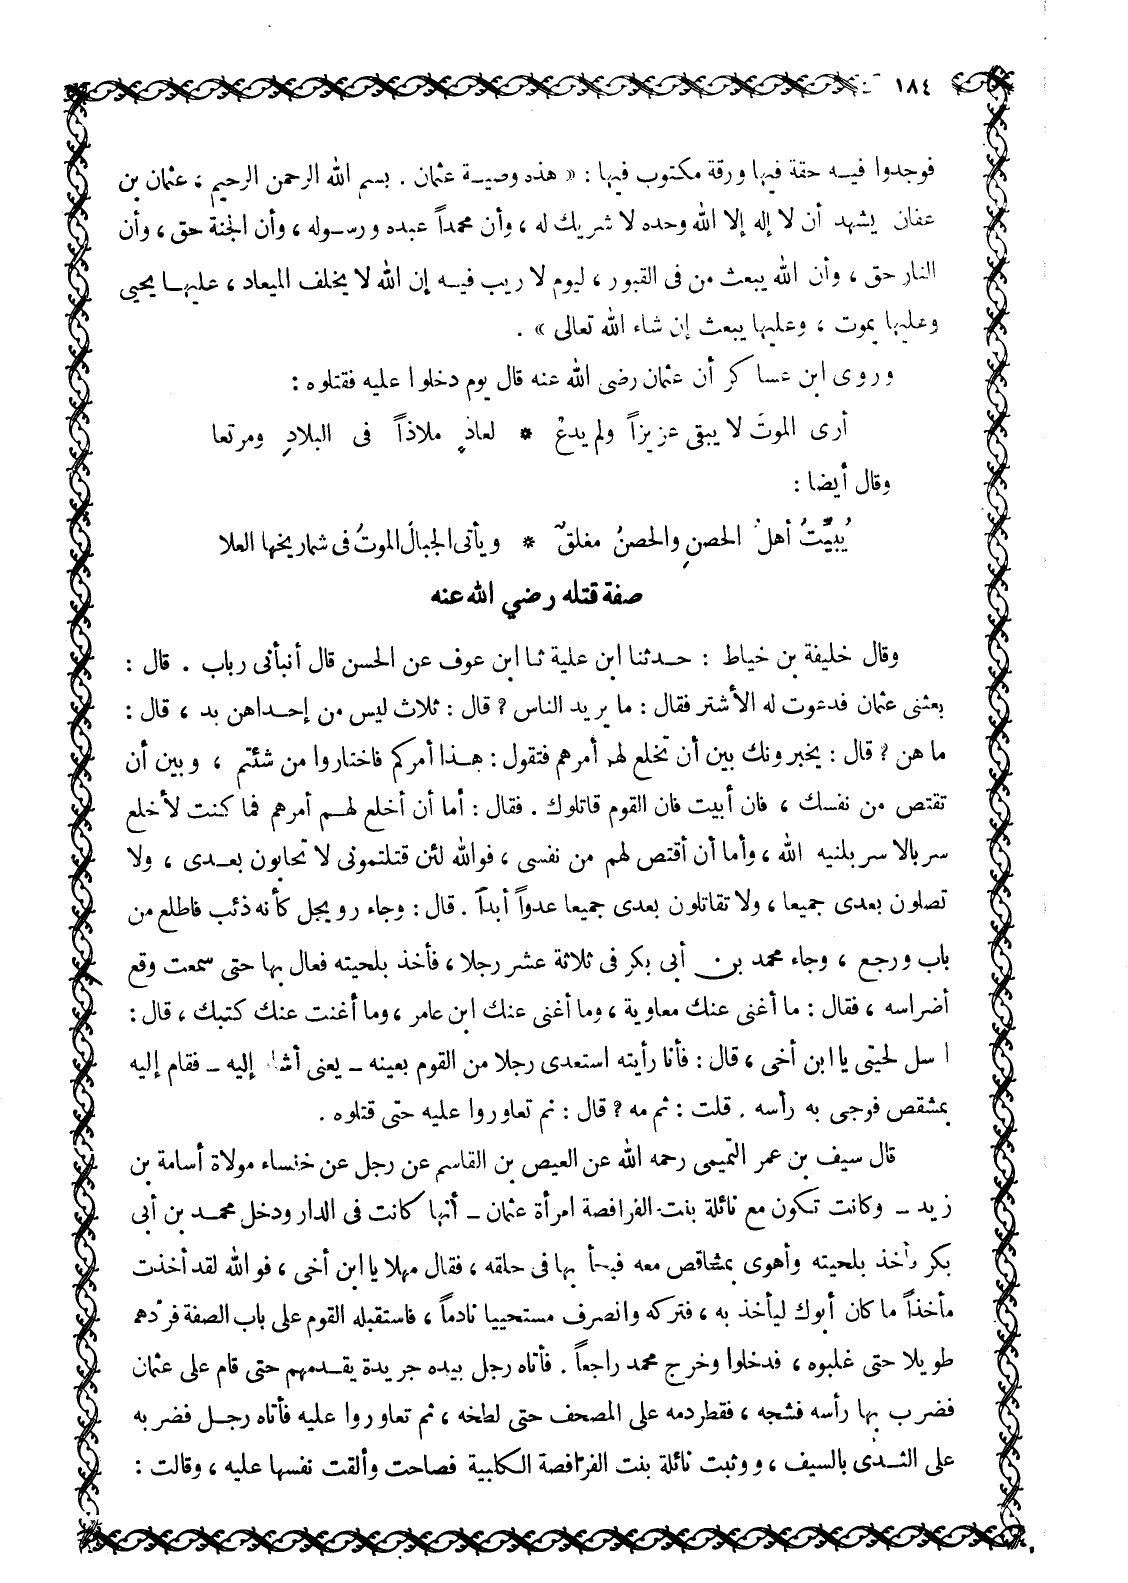 ١٨٤
فوجدوا فيه حقة فيها ورقة مكتوب فيها : « هذه وصية عثمان . بسم الله الرحمن الرحيم ، عثمان بن
عفان يشهد أن لا إله إلا الله وحده لا شريك له ، وأن محمداً عبده ورسوله ، وأن الجنة حق ، وأن
النار حق ، وأن الله يبعث من فى القبور ، ليوم لا ريب فيه إن الله لا يخلف الميعاد ، عليها يحيى
وعليها يموت ، وعليها يبعث إن شاء الله تعالى » .
وروى ابن عساكر أن عثمان رضى الله عنه قال يوم دخلوا عليه فقتلوه :
أرى الموتَ لا يبقى عزيزاً ولم يدعْ * لعاذٍ ملاذاً فى البلادِ ومرتعا
وقال أيضا :
يُبيَّتُ أهلُ الحصنِ والحصنُ مغلقٌ * ويأتى الجبالَ الموتُ فى شماريخها العلا
صفة قتله رضي الله عنه
وقال خليفة بن خياط : حدثنا ابن علية ثنا ابن عوف عن الحسن قال أنبأنى رباب . قال :
بعثنى عثمان فدعوت له الأشتر فقال : ما يريد الناس ? قال : ثلاث ليس من إحداهن بد ، قال :
ما هن ? قال : يخبرونك بين أن تخلع لهم أمرهم فتقول : هذا أمركم فاختاروا من شئتم ، وبين أن
تقتص من نفسك ، فان أبيت فان القوم قاتلوك . فقال : أما أن أخلع لهم أمرهم فما كنت لأخلع
سربالا سربلنيه الله ، وأما أن أقتص لهم من نفسى ، فوالله لئن قتلتمونى لا تحابون بعدى ، ولا
تصلون بعدى جميعا ، ولا تقاتلون بعدى جميعا عدواً أبداً . قال : وجاء رويجل كأنه ذئب فاطلع من
باب ورجع ، وجاء محمد بن أبى بكر فى ثلاثة عشر رجلا ، فأخذ بلحيته فعال بها حتى سمعت وقع
أضراسه ، فقال : ما أغنى عنك معاوية ، وما أغنى عنك ابن عامر ، وما أغنت عنك كتبك ، قال :
ا سل لحيتى يا ابن أخى ، قال : فأنا رأيته استعدى رجلا من القوم بعينه ــ يعنى أشار إليه ــ فقام إليه
بمشقص فوجى به رأسه . قلت : ثم مه ? قال : ثم تعاوروا عليه حتى قتلوه .
قال سيف بن عمر التميمى رحمه الله عن العيص بن القاسم عن رجل عن خنساء مولاة أسامة بن
زيد ــ وكانت تكون مع نائلة بنت الفرافصة امرأة عثمان ــ أنها كانت فى الدار ودخل محمد بن أبى
بكر وأخذ بلحيته وأهوى بمشاقص معه فيجأ بها فى حلقه ، فقال مهلا يا ابن أخى ، فو الله لقد أخذت
مأخذاً ما كان أبوك ليأخذ به ، فتركه وانصرف مستحييا نادماً ، فاستقبله القوم على باب الصفة فردهم
طويلا حتى غلبوه ، فدخلوا وخرج محمد راجعاً . فأتاه رجل بيده جريدة يقدمهم حتى قام على عثمان
فضرب بها رأسه فشجه ، فقطر دمه على المصحف حتى لطخه ، ثم تعاوروا عليه فأتاه رجل فضربه
على الثدى بالسيف ، ووثبت نائلة بنت الفرافصة الكلبية فصاحت وألقت نفسها عليه ، وقالت :